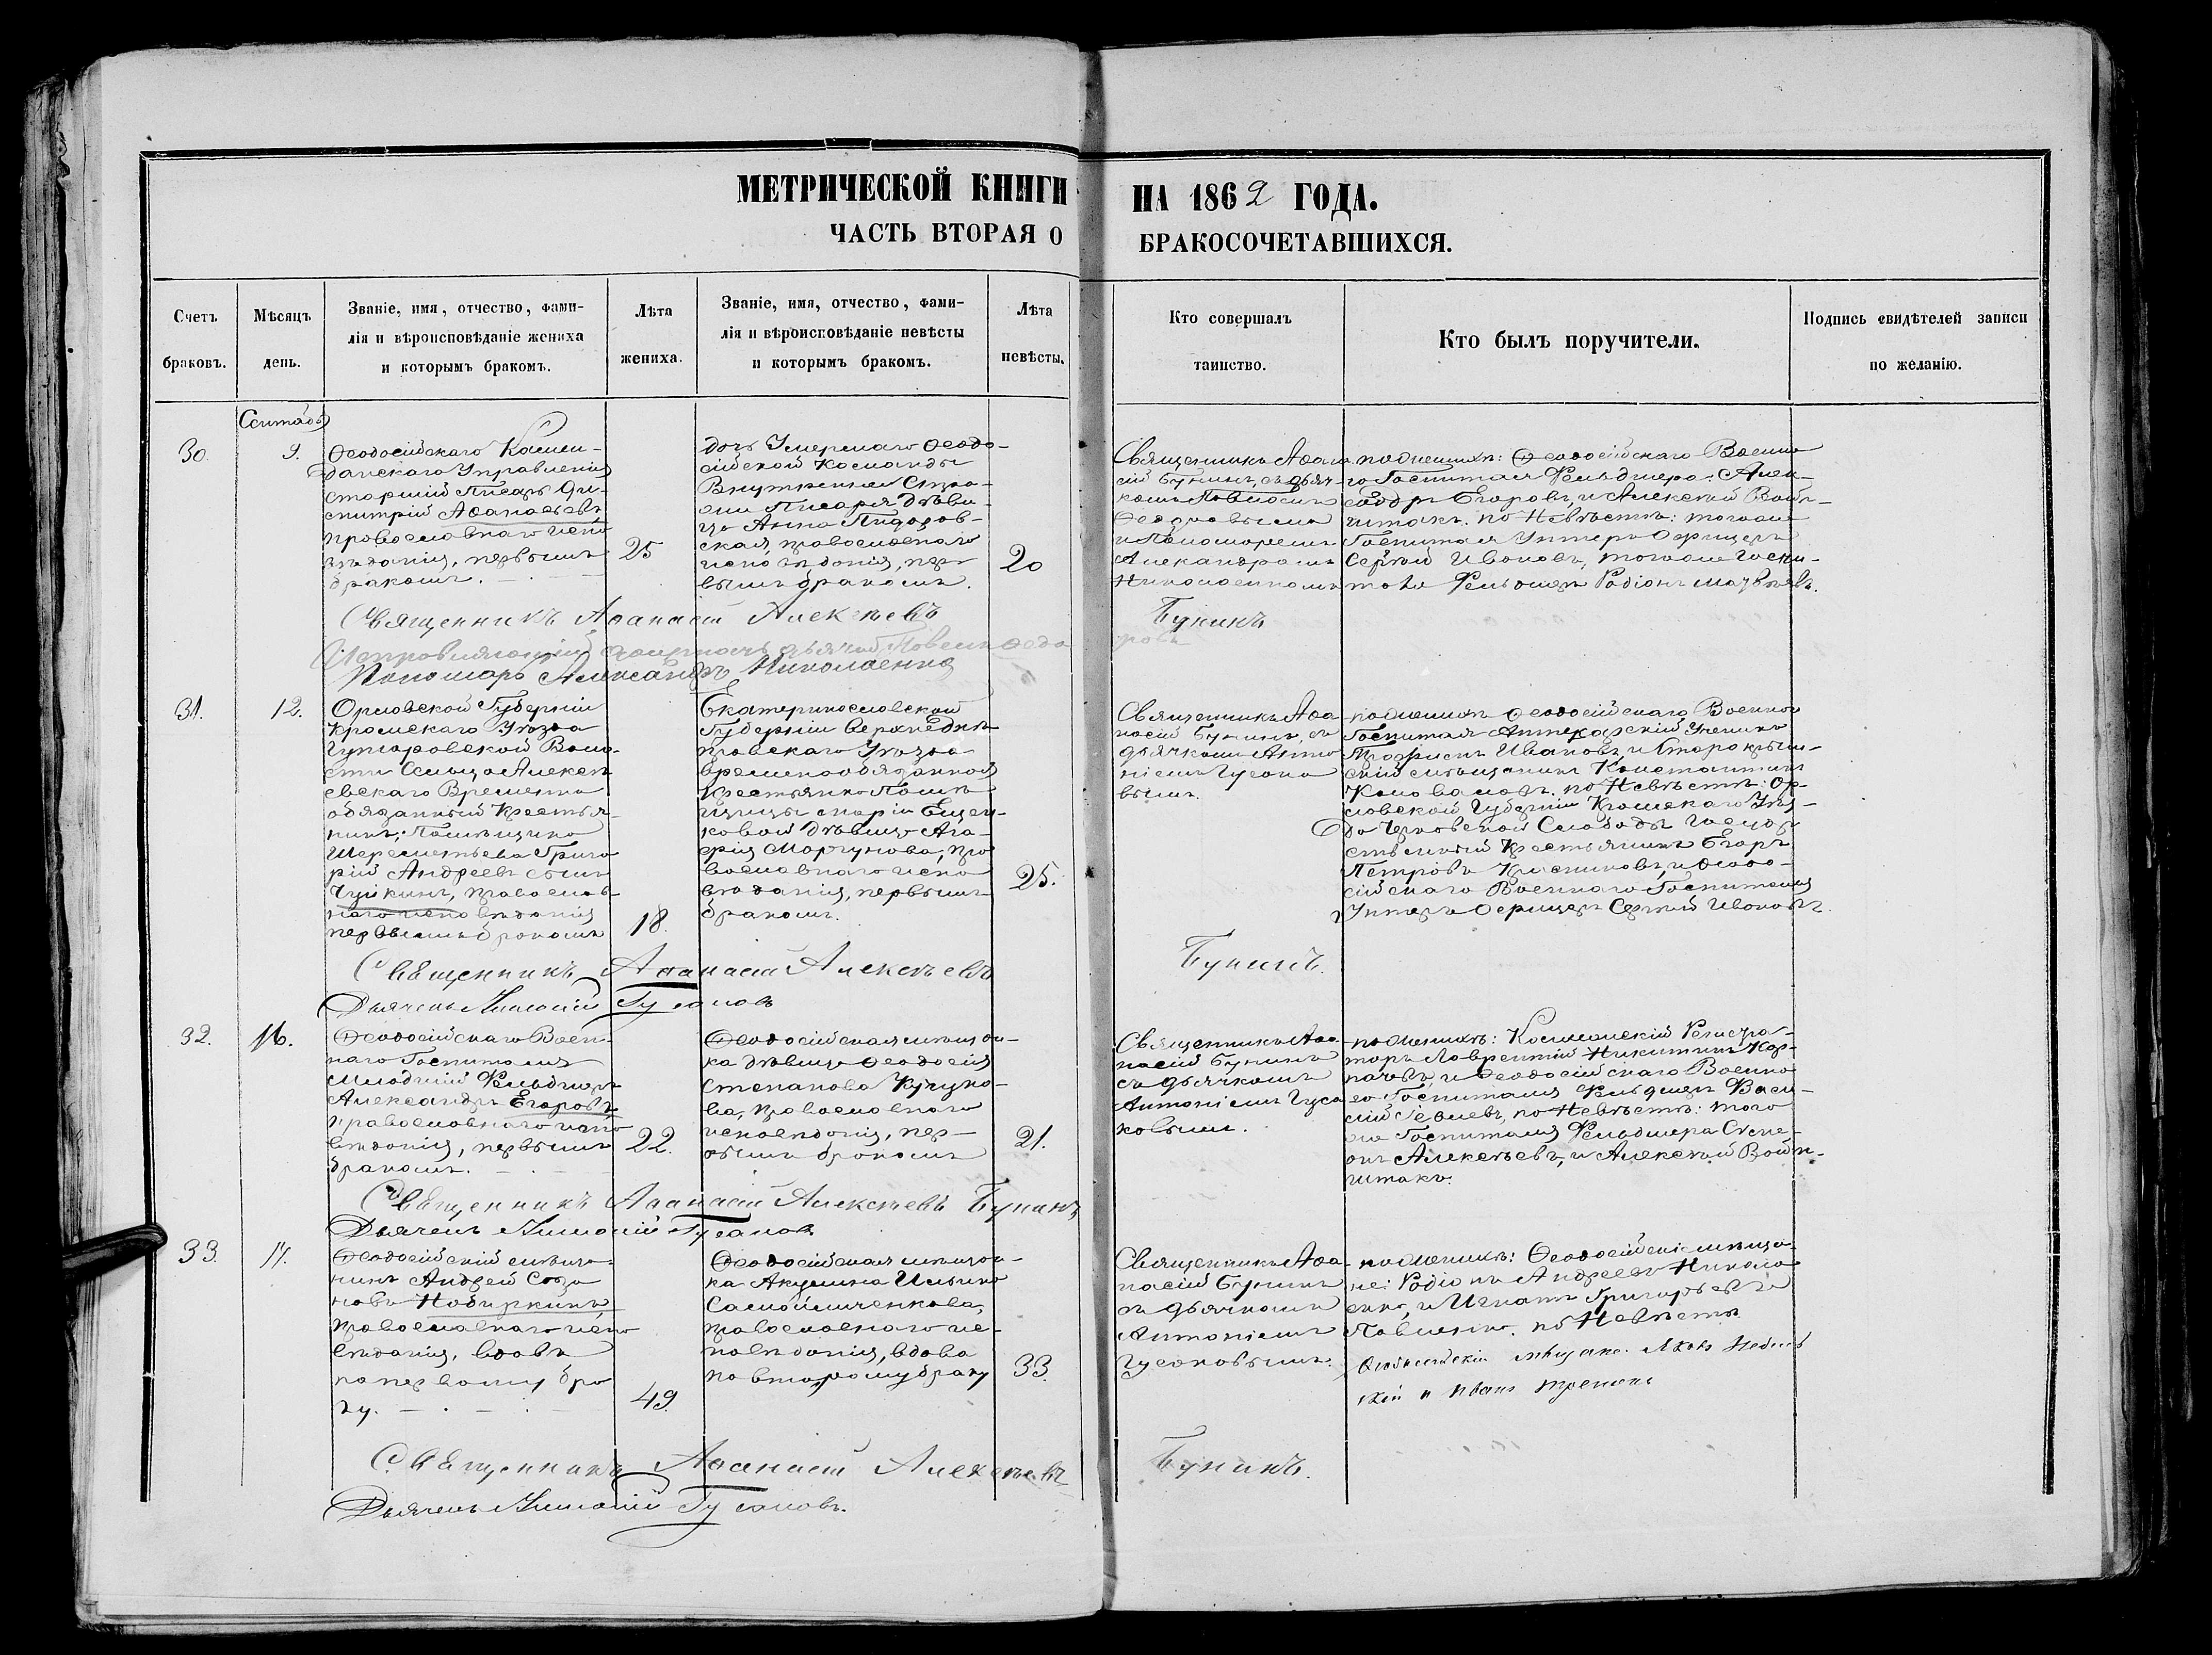 МЕТРИЧЕСКОЙ КНИГИ НА 1862 ГОДА.
ЧАСТЬ ВТОРАЯ О БРАКОСОЧЕТАВШИХСЯ.
Счетъ браковъ.
Мѣсяцъ день.
Званіе, имя, отчество, фами-
лія и вѣроисповѣданіе жениха
и которымъ бракомъ.
Лѣта жениха.
Званіе, имя, отчество, фами-
лія и вѣроисповѣданіе невѣсты
и которымъ бракомъ.
Лѣта невѣсты.
Кто совершалъ
таинство.
Кто былъ поручители.
Подпись свидѣтелей записи
по желанію.
30.
9.
Ѳеодосійскаго Комен-
данскаго Управленія
старшій Писарь Ди-
митрій Аѳанасьевъ
православнаго испо
вѣданія, первымъ
бракомъ.
25
дочь Умершаго Ѳеодо-
сійской Команды
Внутренней Стра-
жи Писаря дѣви-
ца Анна
ская, православнаго
исповѣданія, пер-
вымъ бракомъ.
20
Священникъ Аѳана
сій Бунинъ, съ дьяч-
комъ Павломъ
Ѳедоровымъ
и Пономаремъ
Александромъ
Николаенкомъ
по женихѣ: Ѳеодосійскаго Военна
го Госпиталя Фельдшера: Алек-
сандръ Егоровъ, и Алексѣй Вой-
по Невѣстѣ: тогоже
Госпиталя Унтеръ Офицеръ
Сергѣй Ивановъ, тогоже Госпи-
таля Фельдшеръ Родіонъ Матвѣевъ.
Священникъ Аѳанасій Алексѣевъ Бунинъ
Исправляющій должность дьячка Павелъ Ѳедо
ровъ
Пономарь Александръ Николаенко
31.
12.
Орловской Губерніи
Кромскаго Уѣзда
Воло-
сти Сельца Алексѣ
евскаго Временно
обязанный Крестья-
нинъ, Помѣщика
Шереметьева Григо
рій Андреевъ сынъ
Чуйкинъ, православ-
наго исповѣданія
первымъ бракомъ
18.
Екатеринославской
Губерніи Верхнеднѣ-
провскаго Уѣзда
временнообязанной
Крестьянка Помѣ-
щицы Маріи Ещен-
ковой дѣвица Ага-
фія Моргунова, пра
вославнаго испо
вѣданія, первымъ
бракомъ.
25.
Священникъ Аѳа
насій Бунинъ, съ
дьячкомъ Анто
ніемъ Гусако
вымъ
по женихѣ Ѳеодосійскаго Военнаго
Госпиталя Аптекарскій Ученикъ
Трофимъ Ивановъ, и Старокрым-
скій мѣщанинъ Константинъ
Коновановъ. по Невѣстѣ: Ор-
ловской Губерніи Кромскаго Уѣз-
да Слободы Госуда
ственный Крестьянинъ Егоръ
Петровъ и Ѳеодо-
сійскаго Военнаго Госпиталя
Унтеръ Офицеръ Сергѣй Ивановъ.
Священникъ Аѳанасій Алексѣевъ Бунинъ.
Дьячекъ Антоній Гусаковъ
32.
16.
Ѳеодосійскаго Воен-
наго Госпиталя
Младшій Фельдшеръ
Александръ Егоровъ
православнаго испо
вѣданія, первымъ
бракомъ.
22.
Ѳеодосійская мѣщан-
ка дѣвица Ѳеодосія
Степанова Кучуко-
ва, православнаго
исповѣданія, пер-
вымъ бракомъ
21.
Священникъ Аѳа
насій Бунинъ
съ дьячкомъ
Антоніемъ Гуса
ковымъ.
по женихѣ: Коллежскій Регистра-
торъ Лаврентій Никитинъ Кар-
пачевъ, и Ѳеодосійскаго Военна
го Госпиталя Фельдшеръ Васи-
лій по Невѣстѣ: того
же Госпиталя Фельдшера Степ-
анъ Алексѣевъ, и Алексѣй Вой-
Священникъ Аѳанасій Алексѣевъ Бунинъ
Дьячекъ Антоній Гусаковъ
33.
17.
Ѳеодосійскій мѣща-
нинъ Андрей Соза
новъ Набиркинъ,
православнаго испо
вѣданія, вдовъ
по первому бра
ку.
49.
Ѳеодосійская мѣщан-
ка Акулина Ильина
Самойличенкова,
православнаго ис-
повѣданія, вдова
по второму браку
33.
Священникъ Аѳа
насій Бунинъ
съ дьячкомъ
Антоніемъ
Гусаковымъ.
по женихѣ: Ѳеодосійскіе мѣща-
не: Родіонъ Андреевъ Никола
енко, и Игнатъ Григорьевъ
Павленко. по Невѣстѣ
Ѳеодосійскіе мѣщане. Яковъ
и Иванъ
Священникъ Аѳанасій Алексѣевъ Бунинъ.
Дьячекъ Антоній Гусаковъ.